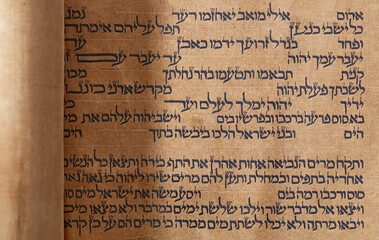 אדום אילי מואב יאחזמו רעד
כל ישבי כנען תפל עליהם אימתה
ופחד בגדל זרועך ידמו כאבן עד
יעבר עמך יהוה עד יעבר
קנית תבאמו ותטעמו בהר נחלתך מכון
לשבתך פעלת יהוה מקדש אדני כוננו
ידיך יהוה ימלך לעלם ועד
בא סוס פרעה ברכבו ובפרשיו בים וישב יהוה עלהם את מי
הים ובני ישראל הלכו ביבשה בתוך הים
ותקח מרים הנביאה אחות אהרן את התף בידה ותצאן כל הנשים
אחריה בתפים ובמחלת ותען להם מרים שירו ליהוה כי גאה גאה
סוס ורכבו רמה בים ויסע משה את ישראל מים סוף
ויצאו אל מדבר שור וילכו שלשת ימים במדבר ולא מצאו מים
ויבאו מרתה ולא יכלו לשתת מים ממרה כי מרים הם על כן קרא